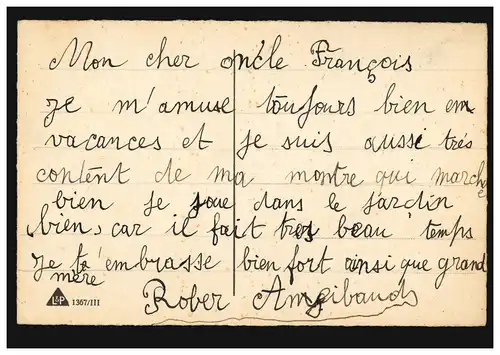 Mon cher oncle François
je m'amuse toujours bien en
vacances et je suis aussi trés
content de ma montre qui marche
bien je joue dans le jardin
bien, car il fait tres beau temps
je t'embrasse bien fort ainsi que grand
mère
Rober Angibaud
L&P 1367/III